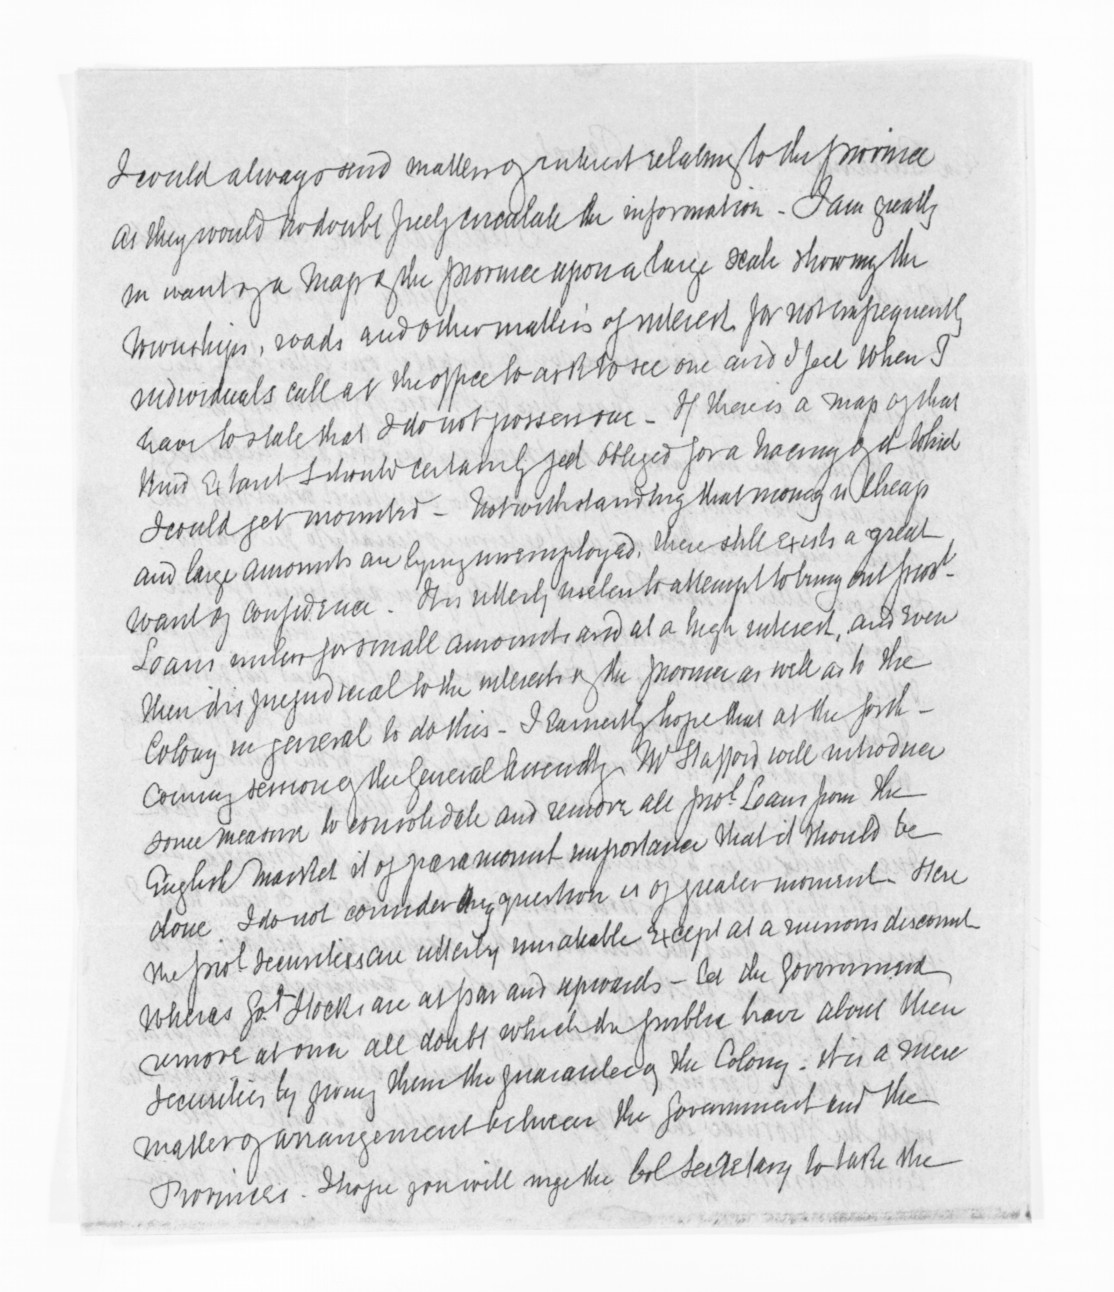 I could always send matters of interest relating to the province
as they would no doubt freely circulate the information - I am greatly
in want of a Map of the province upon a large scale showing the
Townships, roads and other matters of interest for not infrequently
individuals call at the office to ask to see one and I feel when I
have to state that I do not possess one - If there is a map of that
kind extant I should certainly feel obliged for a tracing of it which
I could get mounted - Notwithstanding that money is cheap
and large amounts are lying unemployed, there still exists a great
want of confidence. It is utterly useless to attempt to bring out provl.
Loans unless for small amounts and at a high interest, and even
then it is prejudicial to the interests of the province as well as to the
Colony in general to do this - I earnestly hope that at the forth-
coming session of the General Assembly, Mr Stafford will introduce
some measure to consolidate and remove all provl. Loans from the
English Market it of paramount importance that it should be
done I do not consider any question is of greater moment. Here
the provl. Securities are utterly unsaleable except at a ruinous discount
whereas Govt Stocks are at par and upwards - Let the Government
remove at once all doubt which the public have about these
Securities by giving them the guarantee of the Colony. it is a mere
matter of arrangement between the Government and the
Provinces. I hope you will urge the Col Secretary to take the